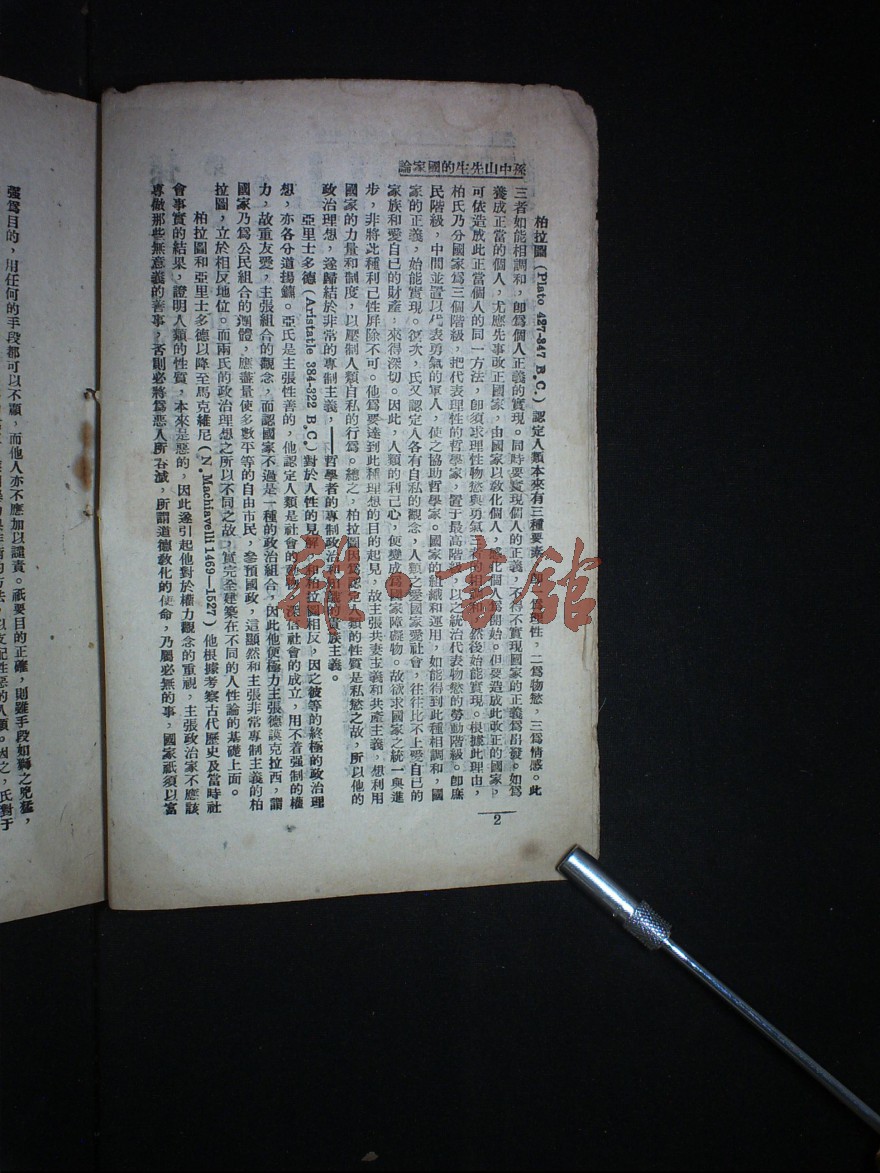 孫中山先生的國家論
柏拉圖(Plato 427-347 B.C.)認定人類本來有三種要素,卽一爲理性,二爲物慾,三爲情感。此
三者如能相調和,卽爲個人正義的實現。同時要實現個人的正義,不得不實現國家的正義爲出發。如爲
養成正當的個人,尤應先事改正國家,由國家以敎化個人,認此個人爲開始。但要造成此改正的國家,
可依造放此正當個人的同一方法,卽須求理性物慾與勇氣三者的相調和,然後始能實現。根據此理由,
柏氏乃分國家爲三個階級,把代表理性的哲學家,置于最高階級,以之統治代表物慾的勞動階級。卽庶
民階級,中間並置以代表勇氣的軍人,使之協助哲學家。國家的組織和運用,如能得到此種相調和,國
家的正義,始能實現。次,氏又認定人各有自私的觀念,人類之愛國家愛社會,往往比不上愛自已的
家族和愛自已的財產,來得深切。因此,人類的利己心,便變成爲國家障礙物。故欲求國家之統一與進
步,非將此種利己性屛除不可。他爲要達到此種理想的目的起見,故主張共妻主義和共產主義,想利用
國家的力量和制度,以壓制人類自私的行爲。總之,柏拉圖因爲認定人類的性質是私慾之故,所以他的
政治理想,遂歸結於非常的專制主義,——哲學者的專制政治和知識的貴族主義。
亞里士多德(Aristatle 384-322 B.C.)對於人性的見解,和柏拉圖相反,因之彼等的終極的政治理
想,亦各分道揚鑣。亞氏是主張性善的,他認定人類是社會的動物,深信社會的成立,用不着强制的權
力,故重友愛,主張組合的觀念,而認國家不過是一種的政治組合,因此他便極力主張德謨克拉西,謂
國家乃爲公民組合的團體,應盡量使多數平等的自由市民,參預國政,這顯然和主張非常專制主義的柏
拉圖,立於相反地位。而兩氏的政治理想之所以不同之故,實完全建築在不同的人性論的基礎上面。
柏拉圖和亞里士多德以降至馬克維尼(N.Machiavelli 1469—1527)他根據考察古代歷史及當時社
會事實的結果,證明人類的性質,本來是惡的,因此遂引起他對於權力觀念的重視,主張政治家不應該
專做那些無意義的善事,否則必將爲惡人所吞滅,所謂道德敎化的使命,乃屬必無的事,國家祇須以富
2
强爲目的,用任何的手段都可以不顧,而他人亦不應加以譴責。祇要目的正確,則雖手段如獅之兇猛,
的方法,以支配性惡的人類。因之,氏對于
雜·書館